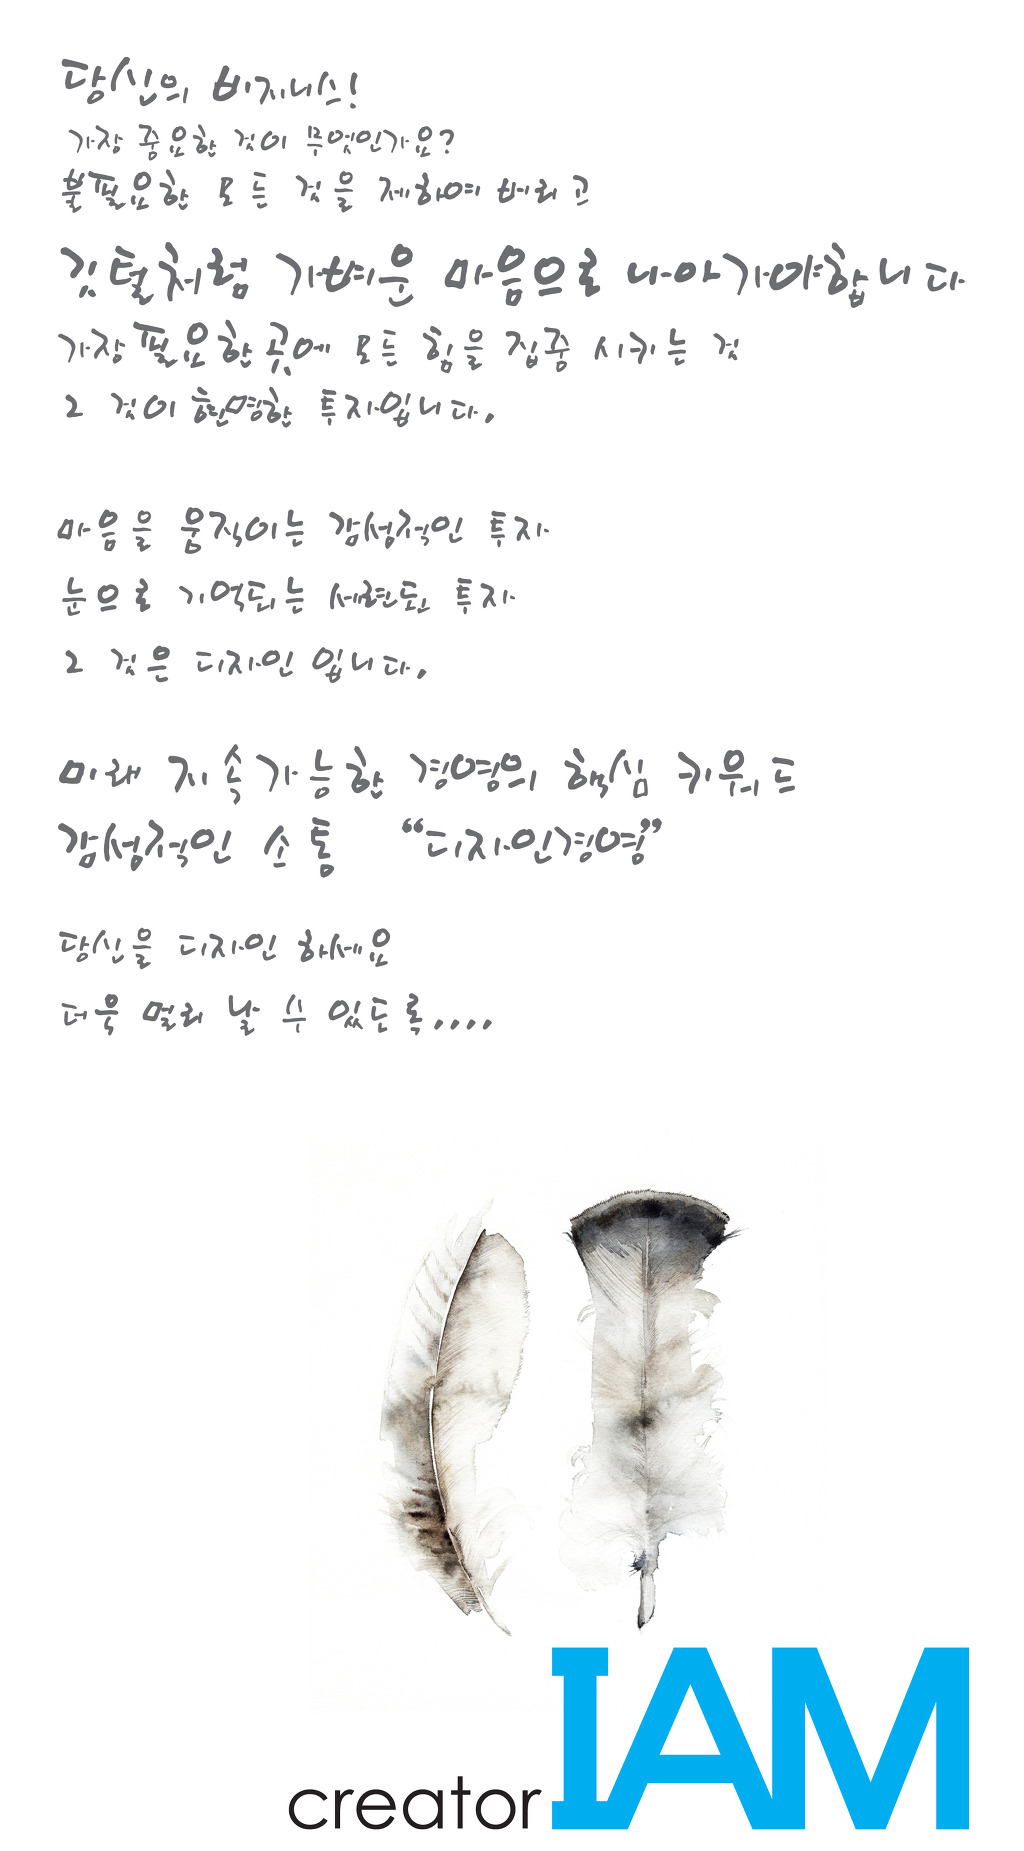 당신의 비지니스!
가장 중요한 것이 무엇인가요?
불필요한 모든 것을 제하여 버리고
깃털처럼 가벼운 마음으로 나아가야합니다
가장필요한곳에 모든 힘을 집중 시키는 것
그 것이 현명한 투자입니다.
마음을 움직이는 감성적인 투자
눈으로 기억되는 세련된 투자
그 것은 디자인 입니다.
미래 지속가능한 경영의 핵심 키워드
감성적인 소통 “디자인경영”
당신을 디자인 하세요
더욱 멀리 날 수 있도록....
creator IAM